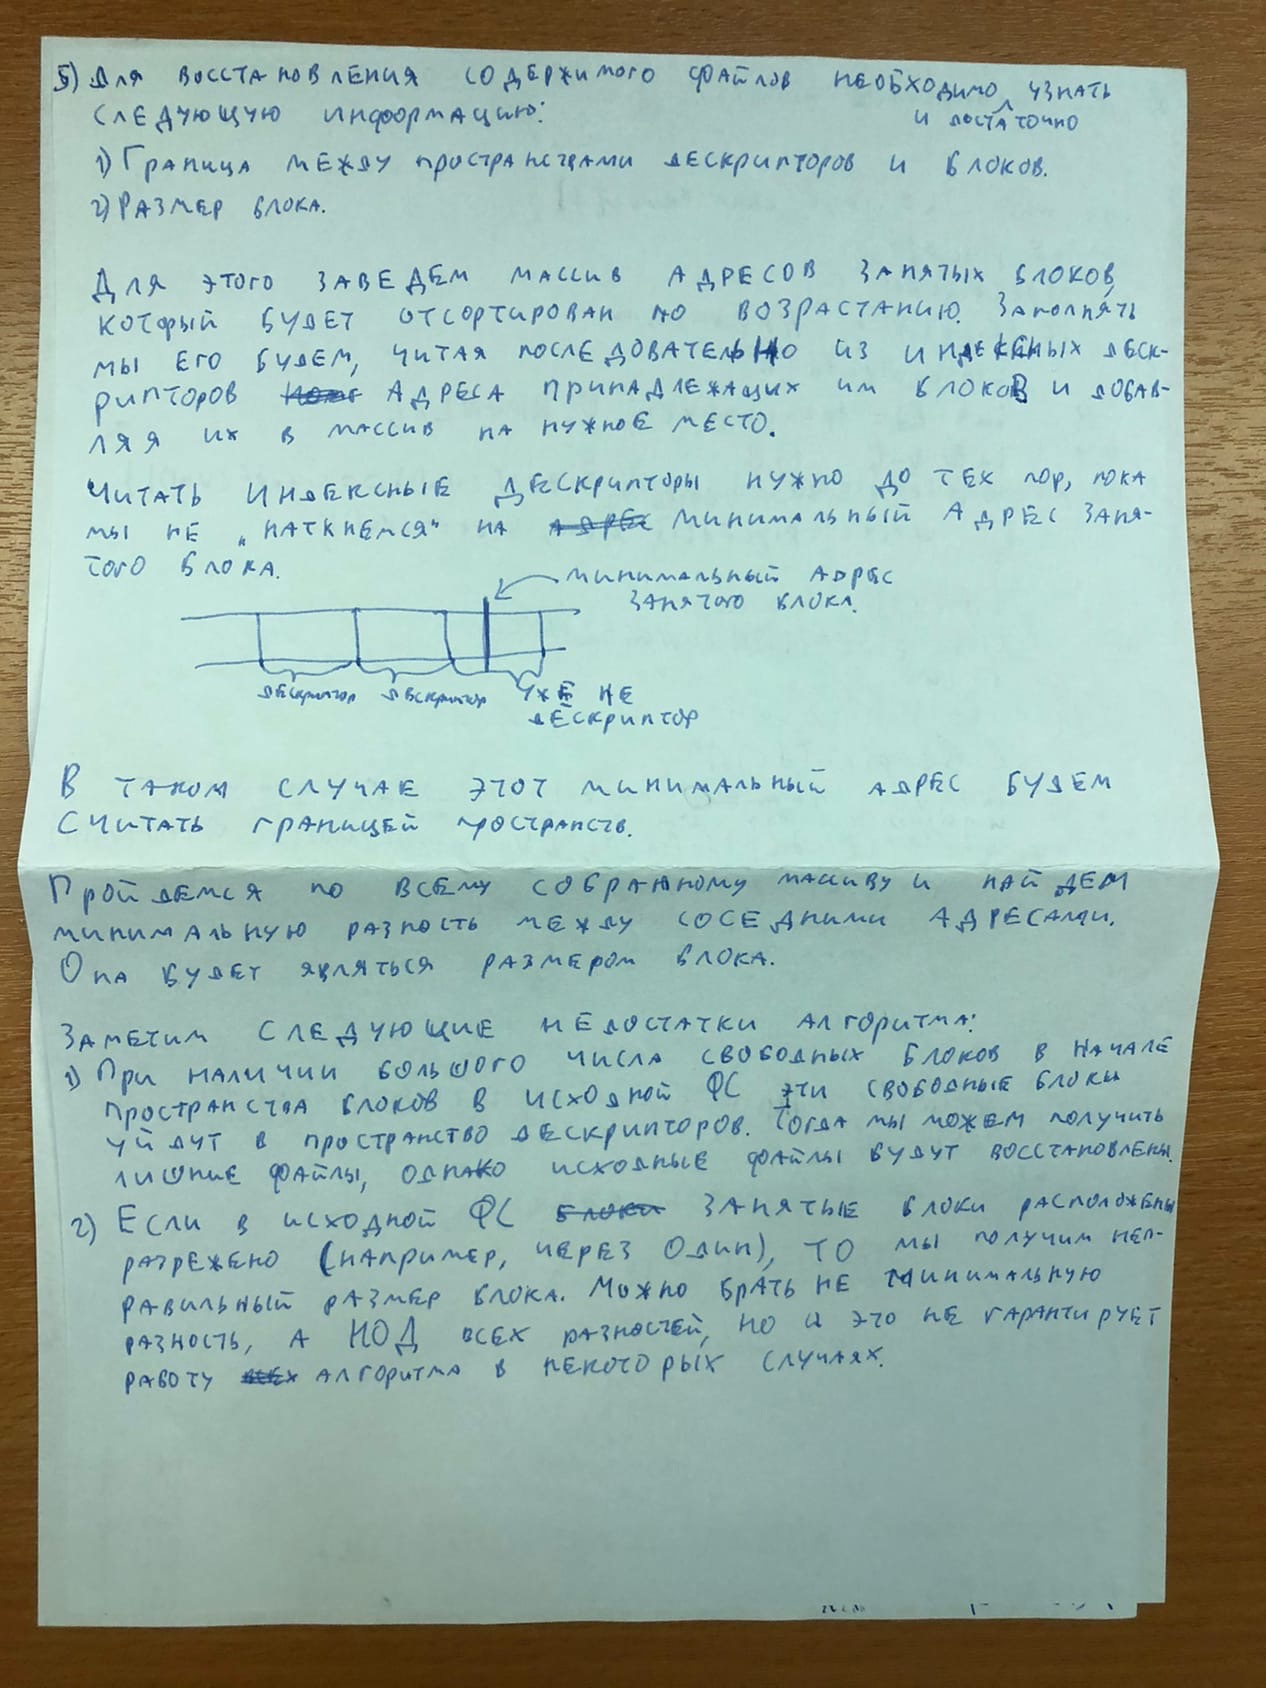 5) Для восстановления содержимого файлов необходимо узнать
и достаточно
следующую информацию:
1) Граница между пространствами дескрипторов и блоков.
2) Размер блока.
Для этого заведем массив адресов занятых блоков,
который будет отсортирован по возрастанию. Заполнять
мы его будем, читая последовательно из индексных деск-
рипторов адреса принадлежащих им блоков и добав-
ляя их в массив на нужное место.
Читать индексные дескрипторы нужно до тех пор, пока
мы не "наткнемся" на минимальный адрес заня-
того блока.
минимальный адрес
занятого блока.
дескриптор дескриптор уже не
дескриптор
В таком случае этот минимальный адрес будем
считать границей пространств.
Пройдемся по всему собранному массиву и найдем
минимальную разность между соседними адресами.
Она будет являться размером блока.
Заметим следующие недостатки алгоритма:
1) При наличии большого числа свободных блоков в начале
пространства блоков в исходной ФС эти свободные блоки
уйдут в пространство дескрипторов. Тогда мы можем получить
лишние файлы, однако исходные файлы будут восстановлены.
2) Если в исходной ФС занятые блоки расположены
разрежено (например, через один), то мы получим неп-
равильный размер блока. Можно брать не минимальную
разность, а НОД всех разностей, но и это не гарантирует
работу алгоритма в некоторых случаях.